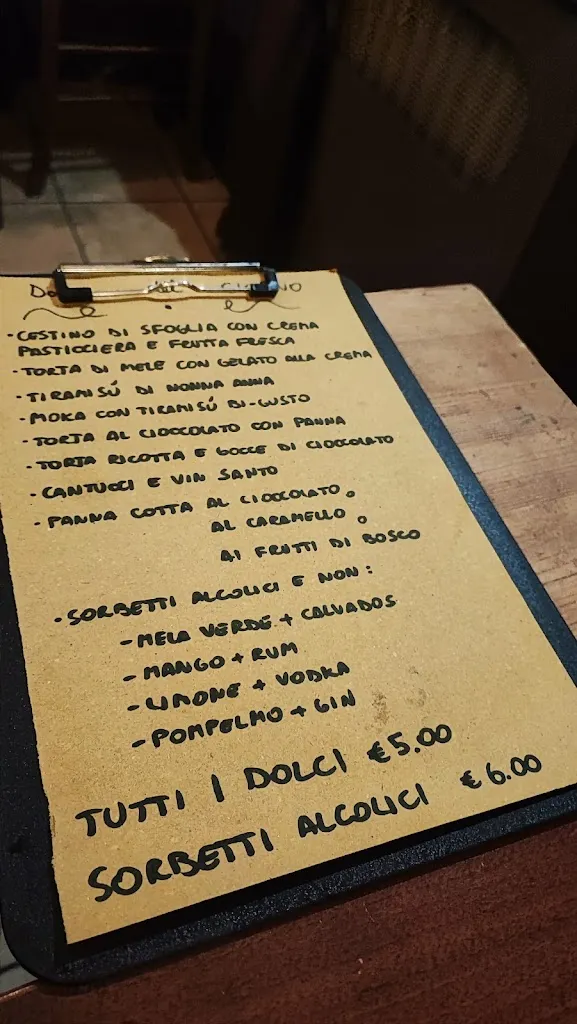 ·CESTINO DI SFOGLIA CON CREMA
PASTICCIERA E FRUTTA FRESCA
·TORTA DI MELE CON GELATO ALLA CREMA
·TIRAMISÚ DI NONNA ANNA
·MOKA CON TIRAMISÚ DI-GUSTO
·TORTA AL CIOCCOLATO CON PANNA
·TORTA RICOTTA E GOCCE DI CIOCCOLATO
·CANTUCCI E VIN SANTO
·PANNA COTTA AL CIOCCOLATO O
AL CARAMELLO O
AI FRUTTI DI BOSCO
·SORBETTI ALCOLICI E NON:
-MELA VERDE + CALVADOS
-MANGO + RUM
-LIMONE + VODKA
-POMPELMO + GIN
TUTTI I DOLCI €5.00
SORBETTI ALCOLICI €6.00